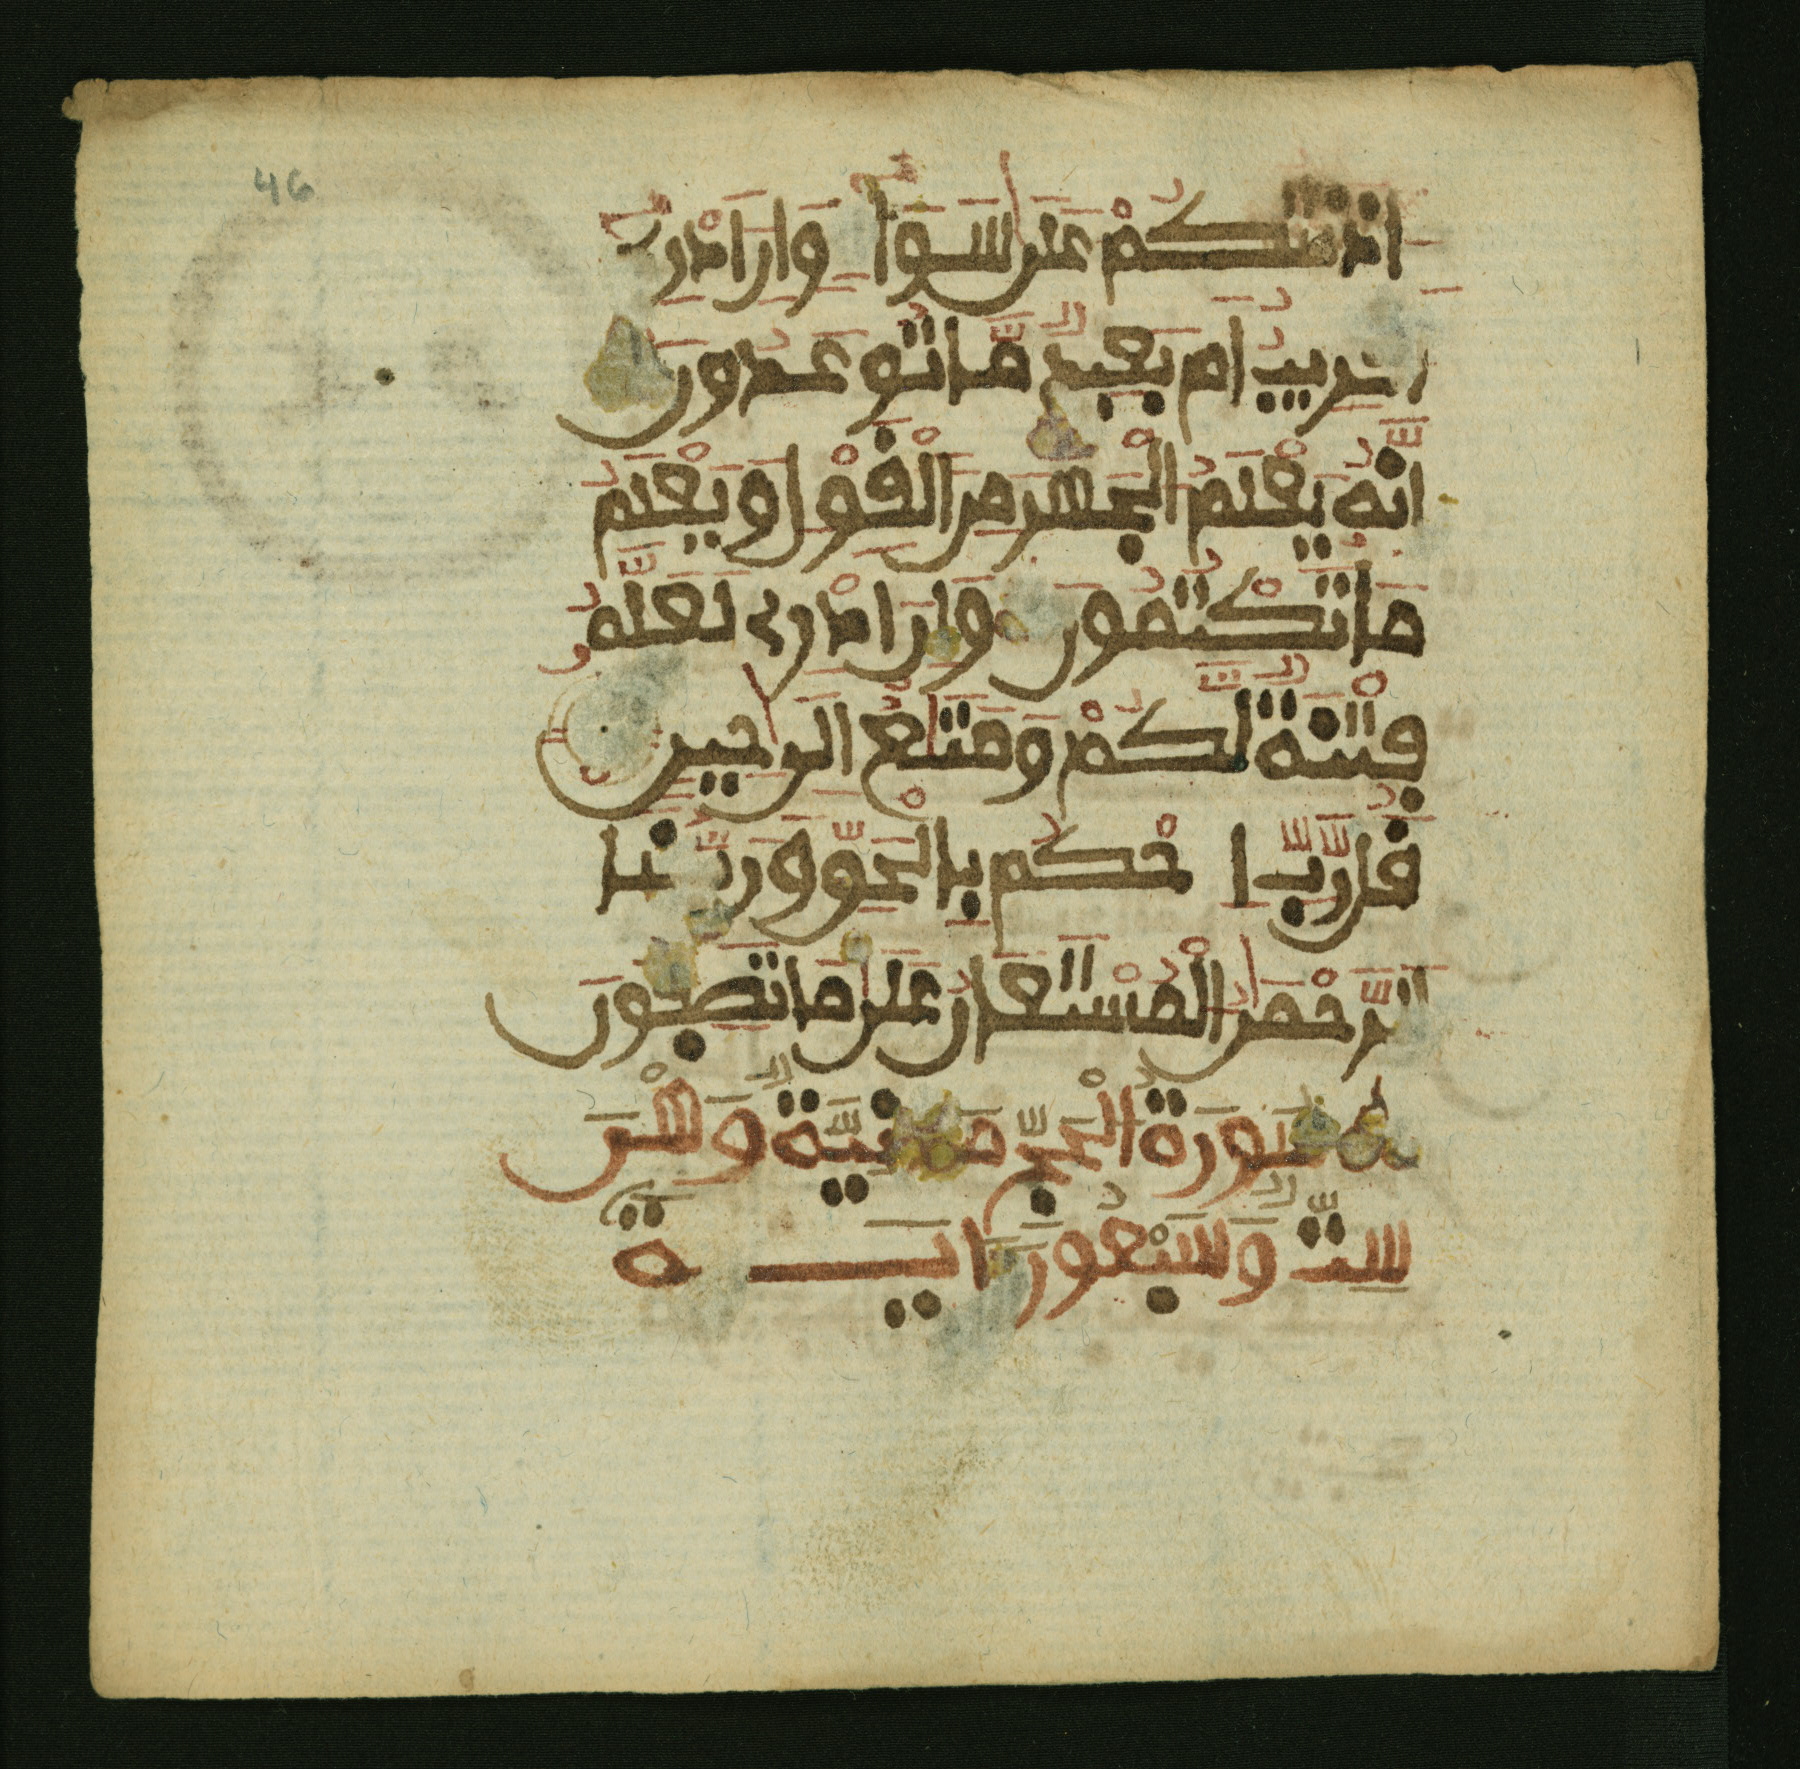 46
اذنتكم على سوا وان ادرى
اقريب ام بعيد ما توعدون
انه يعلم الجهر من القول ويعلم
ما تكتمون وان ادرى لعله
فتنة لكم ومتع الى حين
قل رب ا حكم بالحق وربنا
الرحمن المستعان على ما تصفون
سورة الحج مدنية وهى
ست وسبعون اية